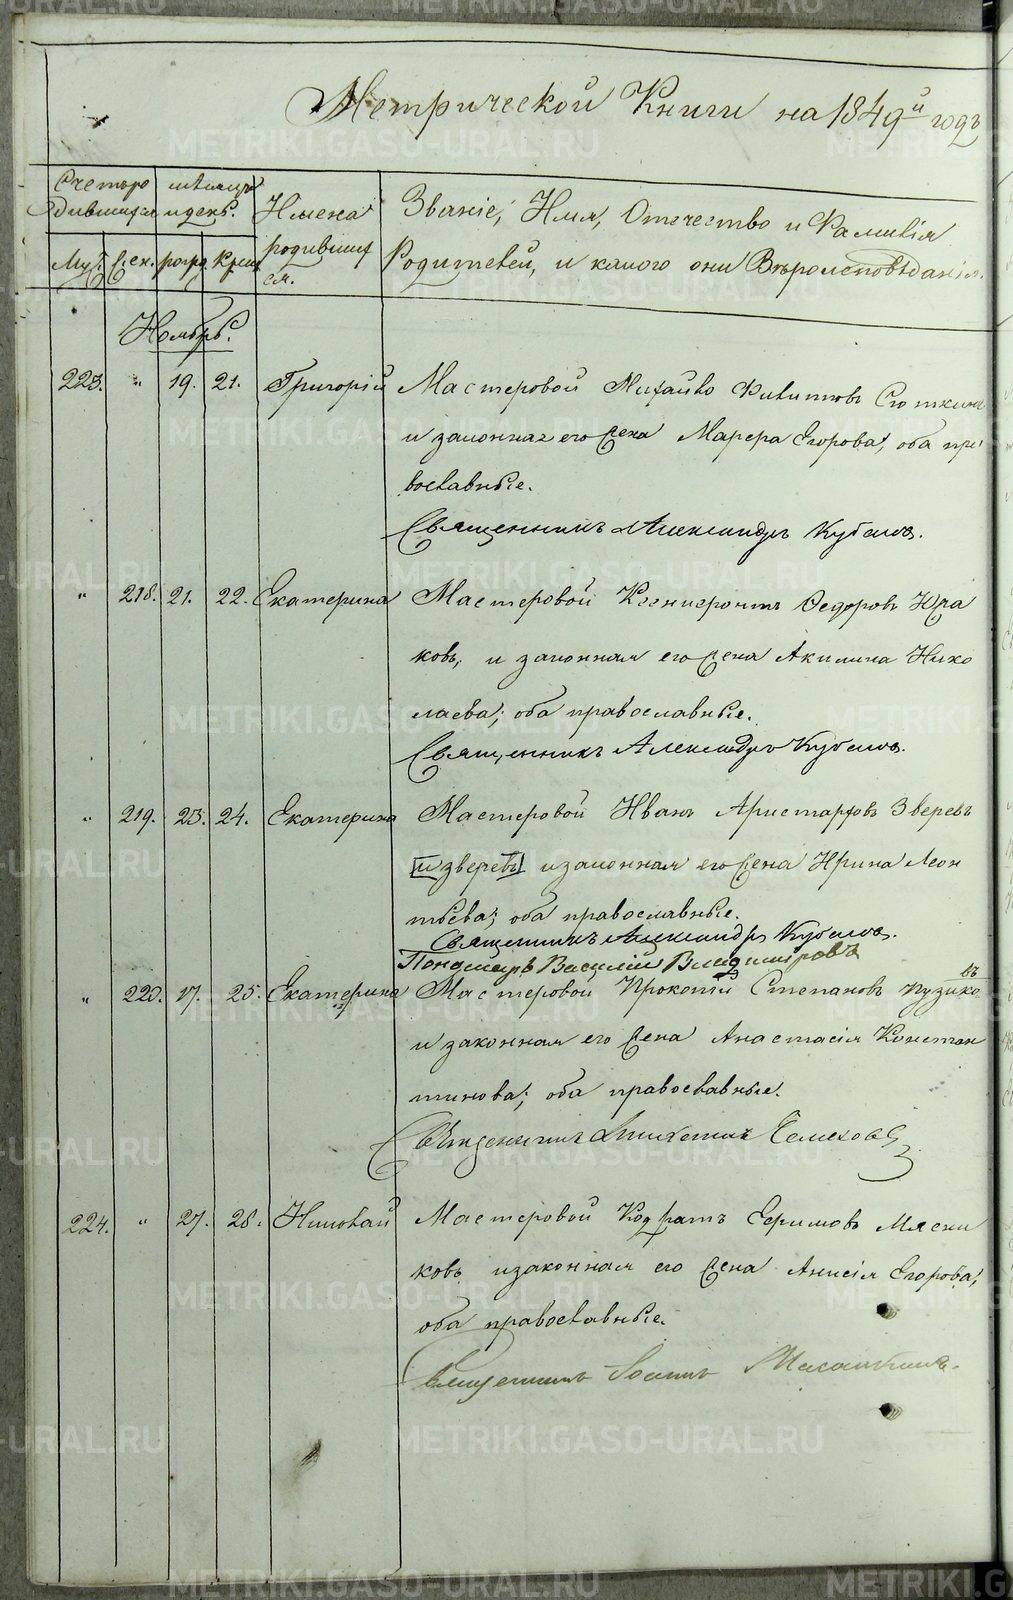 Метрической Книги на 1849й годъ
Счетъ ро дившихся
мѣсяцъ и день.
Имена родивших ся.
Званіе, Имя, Отечество и Фамилія
Родителей, и какого они Вѣроисповѣданія.
Муж. Жен. рожд. крещ.
Ноябрь.
223. " 19. 21. Григорій Мастеровой Михайло Филиповъ Сюткинъ
и законная его жена Марфа Егорова, оба пра
вославные.
Священникъ Александръ Кубасовъ.
" 218. 21. 22. Екатерина Мастеровой Ксенофонтъ Федоровъ Юша
ковъ, и законная его жена Акилина Нико
лаева; оба православные.
Священникъ Александръ Кубасовъ.
" 219. 23. 24. Екатерина Мастеровой Иванъ Аристарховъ Зверевъ
[и зверевъ] и законная его жена Ирина Леон
тьева; оба православные.
Священникъ Александръ Кубасовъ.
Пономарь Василій Владиміровъ
" 220. 17. 25. Екатерина Мастеровой Прокопій Степановъ Пузико
въ
и законная его жена Анастасія Констан
тинова; оба православные.
Священникъ
224. " 27. 28. Николай Мастеровой Кодратъ Ефимовъ Мясни
ковъ и законная его жена Анисія Егорова,
оба православные.
Священникъ Іоаннъ
METRIKI.GASO-URAL.RU